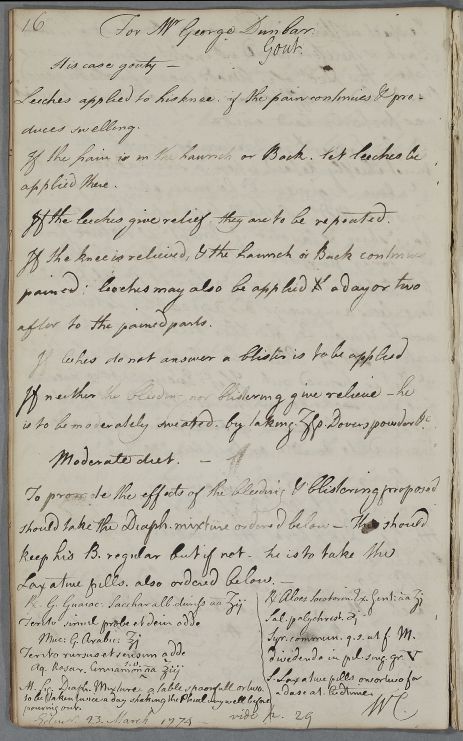 16
For Mr George Dunbar.
Gout.
His case gouty —
Leeches applied to his knee. if the pain continues & pro-
duces swelling.
If the pain is in the haunch or Back. let leeches be
applied there.
If the leeches give relief they are to be repeated.
If the knee is relieved, & the haunch or Back continue
pained: leeches may also be applied a day or two
after to the pained parts.
If leeches do not answer a blister is to be applied
If neither the bleeding nor blistering give relieve — he
is to be moderately sweated. by taking Dovers powder &c
Moderate diet. —
To promote the effects of the bleeding & blistering proposed
should take the Diaph. mixture ordered below — should
keep his B. regular but if not. he is to take the
Laxative pills. also ordered below. —
Rx. G. Guaiac: Sacchar alb: duriss aa ʒij
Terito simul probe et dein adde
Muc: G. Arabic: ʒj
Terito rursus et sensim adde
Aq. Rosar. Cinnamon aa ʒiij
M. Sig. Diaph. Mixture a table spoonfull or two
to be taken twice a day shaking the Phial very well before
pouring out.
23. March 1775
Rx Aloes Socotorin. Ex. Gent: aa ʒj
Sal. polychrest. ʒj
Syr. commun. q. s. ut f. M.
dividenda in pil. sing. gr. V
S. Laxative pills one or two for
a dose at bedtime.
WC
vide p. 29